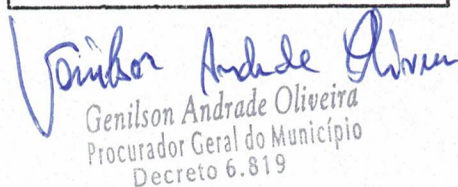 Genilson Andrade Oliveira
Genilson Andrade Oliveira
Procurador Geral do Município
Decreto 6.819